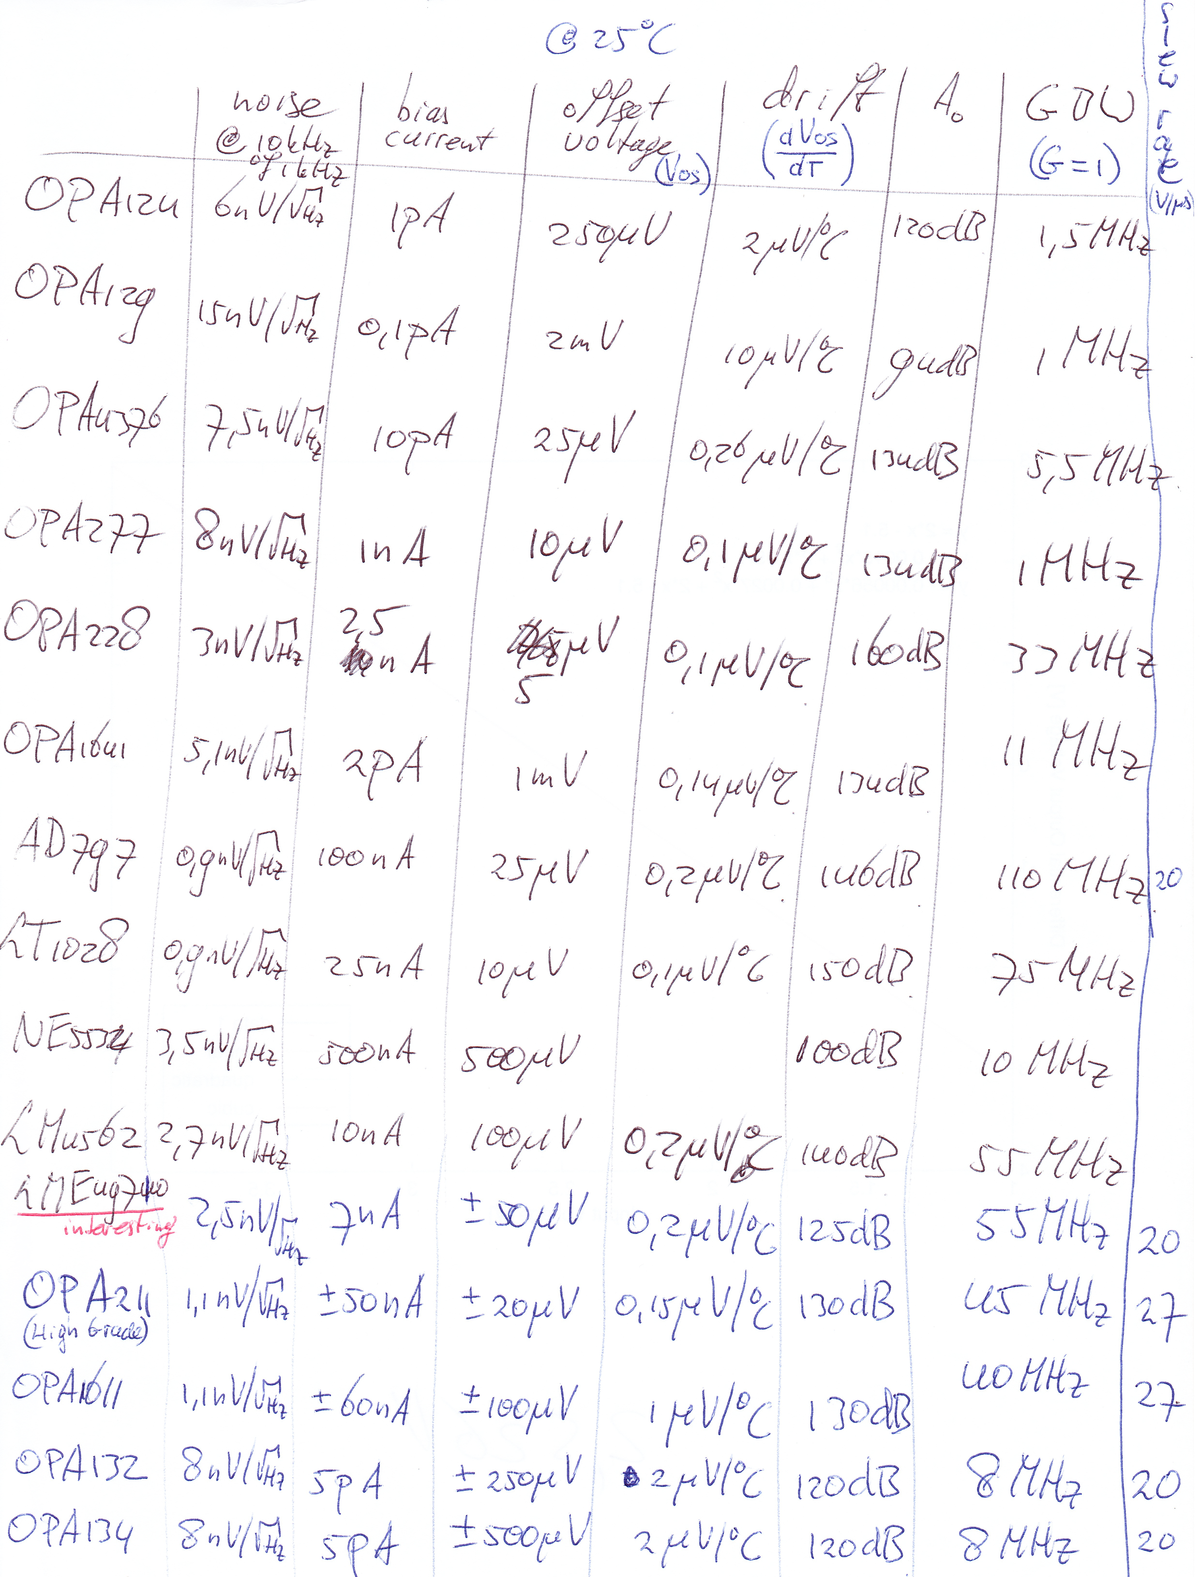 @ 25°C
noise @ 10kHz of 1kHz | bias current | offset voltage (Vos) | drift (dVos/dT) | A₀ | GBW (G=1) | slew rate (V/µs)
OPA124 | 6nV/√Hz | 1pA | 250µV | 2µV/°C | 120dB | 1,5MHz
OPA129 | 15nV/√Hz | 0,1pA | 2mV | 10µV/°C | 94dB | 1MHz
OPA4376 | 7,5nV/√Hz | 10pA | 25µV | 0,26µV/°C | 134dB | 5,5MHz
OPA277 | 8nV/√Hz | 1nA | 10µV | 0,1µV/°C | 134dB | 1MHz
OPA228 | 3nV/√Hz | 2,5 nA | 5 µV | 0,1µV/°C | 160dB | 33MHz
OPA1641 | 5,1nV/√Hz | 2pA | 1mV | 0,14µV/°C | 134dB | 11MHz
AD797 | 0,9nV/√Hz | 100nA | 25µV | 0,2µV/°C | 146dB | 110MHz | 20
LT1028 | 0,9nV/√Hz | 25nA | 10µV | 0,1µV/°C | 150dB | 75MHz
NE5534 | 3,5nV/√Hz | 500nA | 500µV | | 100dB | 10MHz
LM4562 | 2,7nV/√Hz | 10nA | 100µV | 0,2µV/°C | 140dB | 55MHz
LME49740 | 2,5nV/√Hz | 7nA | ±50µV | 0,2µV/°C | 125dB | 55MHz | 20
interesting
OPA211 | 1,1nV/√Hz | ±50nA | ±20µV | 0,15µV/°C | 130dB | 45MHz | 27
(High Grade)
OPA1611 | 1,1nV/√Hz | ±60nA | ±100µV | 1µV/°C | 130dB | 40MHz | 27
OPA132 | 8nV/√Hz | 5pA | ±250µV | 2µV/°C | 120dB | 8MHz | 20
OPA134 | 8nV/√Hz | 5pA | ±500µV | 2µV/°C | 120dB | 8MHz | 20